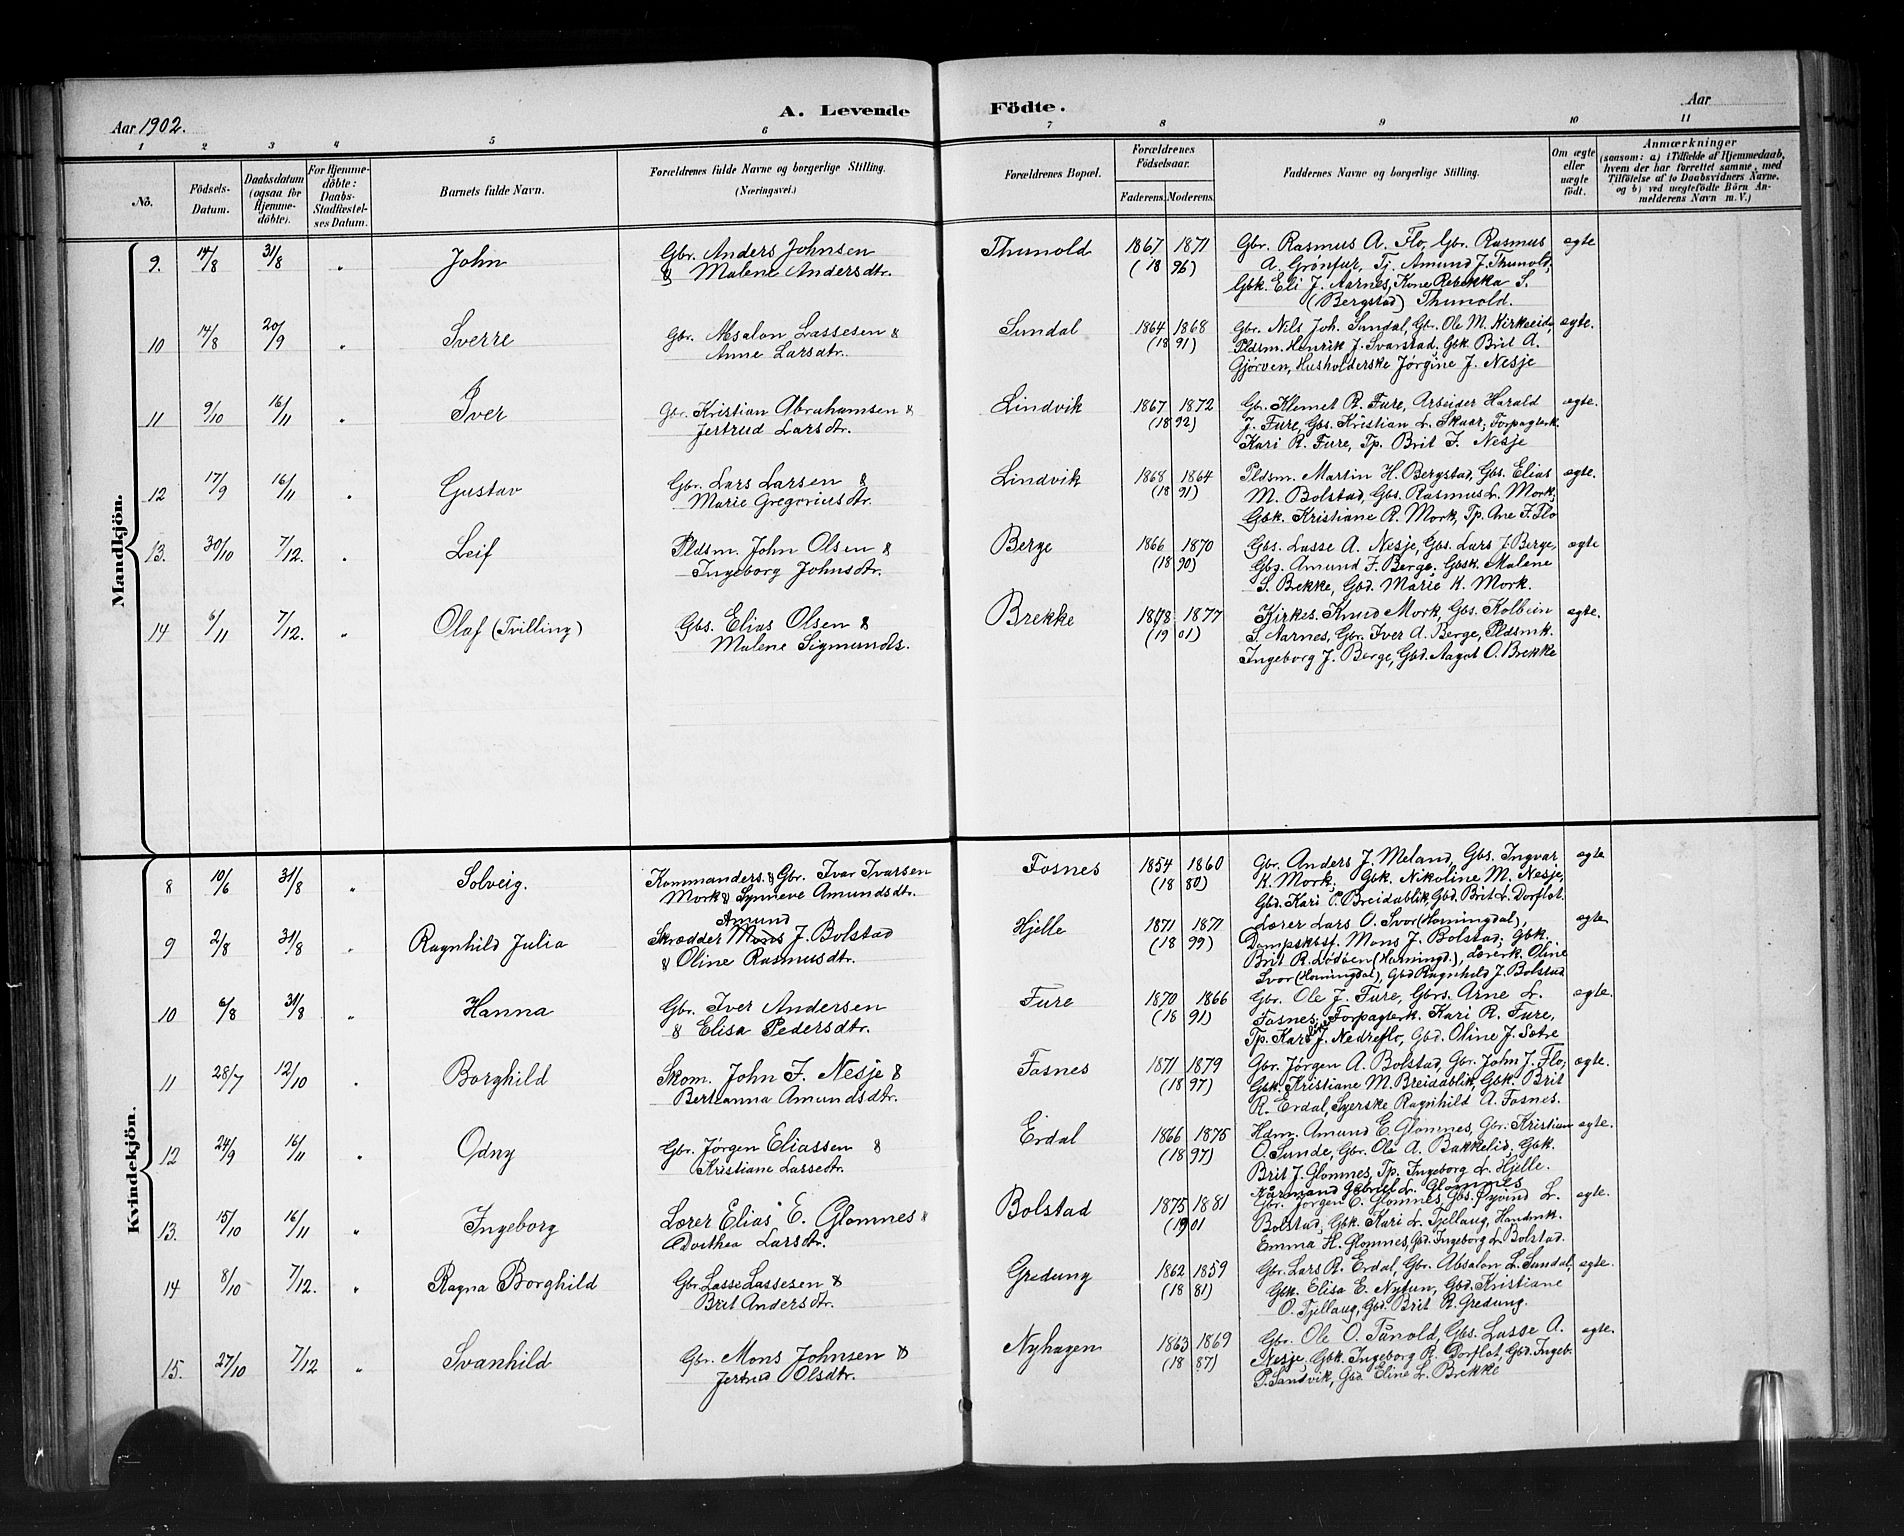 Aar 1902.
A. Levende Födte.
Aar
1 2 3 4 5 6 7 8 9 10 11
No.
Födsels-Datum.
Daabsdatum (ogsaa for Hjemme-döbte).
For Hjemme-döbte: Daabs-Stadfæstel-ses Datum.
Barnets fulde Navn.
Forældrenes fulde Navne og borgerlige Stilling. (Næringsvei.)
Forældrenes Bopæl.
Forældrenes Födselsaar.
Faderens. Moderens.
Faddernes Navne og borgerlige Stilling.
Om ægte eller uægte födt.
Anmærkninger
(saasom: a) i Tilfælde af Hjemmedaab,
hvem der har forrettet samme, med
Tilföielse af to Daabsvidners Navne.
og b) ved uægtefödte Börn An-
melderens Navn m. V.)
Mandkjön.
9. 14/8 31/8 „ John Gbr. Anders Johnsen Thunold 1867 1871 Gbr. Rasmus A. Flo, Gbr. Rasmus ægte
& Malene Andersdtr. (18 96) A. Grønfur, Tj. Amund J. Thunold,
Gbk. Eli J. Aarnes, Kone Rebekka S.
(Bergstad) Thunold.
10 14/8 20/9 „ Sverre Gbr. Absalon Lassesen & Sundal 1864 1868 Gbr. Nils Joh. Sundal, Gbr. Ole M. Kirkeeide, ægte.
Anne Larsdtr. (18 91) Pldsm. Henrik J. Svarstad, Gbk. Brit A.
Gjørven, Husholderske Jørgine J. Nesje
11 9/10 16/11 „ Iver Gbr. Kristian Abrahamsen & Lindvik 1867 1872 Gbr. Klemet R. Fure, Arbeider Harald ægte.
Jertrud Larsdtr. (18 92) J. Fure, Gbs. Kristian L. Skaar, Forpagterk.
Kari R. Fure, Tp. Brit J. Nesje
12 17/9 16/11 „ Gustav Gbr. Lars Larsen & Lindvik 1868 1864 Pldsm. Martin H. Bergstad, Gbs. Elias ægte.
Marie Gregoriusdtr. (18 91) M. Bolstad, Gbs. Rasmus L. Mork,
Gbk. Kristiane R. Mork, Tp. Ane J. Flo
13. 30/10 7/12. „ Leif Pldsm. John Olsen & Berge 1866 1870 Gbs. Lasse A. Nesje, Gbs. Lars J. Berge, ægte
Ingeborg Johnsdtr. (18 90) Gbs. Amund J. Berge, Gbsk. Malene
S. Bekke, Gbd. Marie K. Mork.
14 6/11 7/12. „ Olaf (Tvilling) Gbs. Elias Olsen & Brekke 1878 1877 Kirkes. Knud Mork, Gbs. Kolbein ægte.
Malene Sigmunds. (19 01) S. Aarnes, Gbr. Iver A. Berge, Pldsmk.
Ingeborg J. Berge, Gbd. Aagot O. Brekke
Kvindekjön.
8 10/6 31/8 „ Solveig. Kommanders. & Gbr. Ivar Ivarsen Fosnes 1854 1860 Gbr. Anders J. Meland, Gbs. Ingvar ægte
Mork & Synneve Amundsdtr. (18 80) K. Mork, Gbk. Nikoline M. Nesje,
Gbd. Kari P. Breidablik, Gbd. Brit L. Dorflot.
Amund
9 2/8 31/8 „ Ragnhild Julia Skrædder Mons J. Bolstad Hjelle 1871 1871 Lærer Lars O. Svor (Horningdal), ægte
& Oline Rasmusdtr. (18 99) Dampskbsf. Mons J. Bolstad, Gbk.
Brit R. Lødøen (Horningd.), Lærerk. Oline
Svor (Horningdal), Gbd Ragnhild J. Bolstad
10 6/8 31/8 „ Hanna Gbr. Iver Andersen Fure 1870 1866 Gbr. Ole J. Fure, Gbrs. Arne L. ægte.
& Elisa Pedersdtr. (18 91) Fosnes, Forpagterk. Kari R. Fure,
Tp. Karoline J. Nedreflo, Gbd. Oline J. Sætre
11 28/7 12/10 „ Borghild Skom. John J. Nesje & Fosnes 1871 1879 Gbr. Jørgen A. Bolstad, Gbr. John J. Flo, ægte.
Berteanna Amundsdtr. (18 97) Gbk. Kristiane M. Breidablik, Gbk. Brit
R. Erdal, Syerske Ragnhild A. Fosnes.
12 24/9 16/11 „ Odny Gbr. Jørgen Eliassen & Erdal 1866 1875 Hdm. Amund E. Glomnes, Gbr. Kristian ægte.
Kristiane Lassedtr. (18 97) O. Sunde, Gbr. Ole A. Bakkelid, Gbk.
Brit J. Glomnes, Tp. Ingeborg L. Hjelle.
Gabriel L. Glomnes
13. 15/10 16/11 „ Ingeborg Lærer Elias E. Glomnes & Bolstad 1875 1881 Gbr. Jørgen E. Glomnes, Gbs. Øyvind L. ægte.
Dorthea Larsdtr. (19 01 Bolstad, Gbk. Kari L. Tjellaug, Handmk.
Emma H. Glomnes, Gbd. Ingeborg L. Bolstad.
14 8/10 7/12. „ Ragna Borghild Gbr. Lasse Lassesen & Gredung 1862 1859 Gbr. Lars R. Erdal, Gbr. Absalon L. Sundal, ægte.
Brit Andersdtr. (18 81) Gbk. Elisa E. Nytun, Gbd. Kristiane
O. Tjellaug, Gbd. Brit R. Gredung.
15. 27/10 7/12 „ Svanhild Gbr. Mons Johnsen & Nyhagen 1863 1869 Gbr. Ole O. Tunold, Gbs. Lasse A. ægte.
Jertrud Olsdtr. (18 87) Nesje, Gbk. Ingeborg R. Dorflot, Gbd. Ingeb.
P. Sandvik, Gbd. Eline L. Brekke